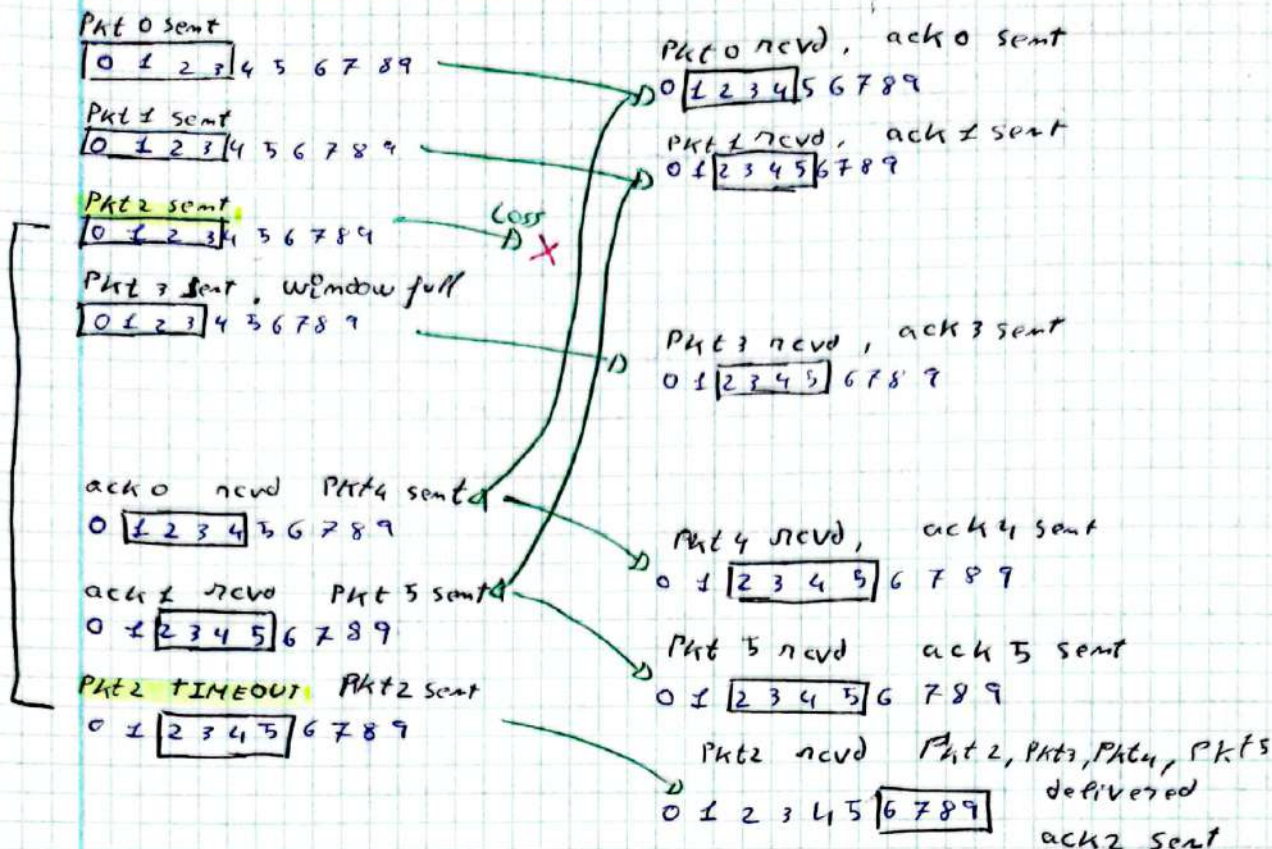 Pkt 0 sent
0 1 2 3 4 5 6 7 8 9
Pkt 1 sent
0 1 2 3 4 5 6 7 8 9
Pkt 2 sent
0 1 2 3 4 5 6 7 8 9
Loss
X
Pkt 3 sent, window full
0 1 2 3 4 5 6 7 8 9
ack 0 rcvd Pkt4 sent
0 1 2 3 4 5 6 7 8 9
ack 1 rcvd Pkt 5 sent
0 1 2 3 4 5 6 7 8 9
Pkt2 TIMEOUT Pkt2 sent
0 1 2 3 4 5 6 7 8 9
Pkt 0 rcvd, ack 0 sent
0 1 2 3 4 5 6 7 8 9
Pkt 1 rcvd, ack 1 sent
0 1 2 3 4 5 6 7 8 9
Pkt 3 rcvd, ack 3 sent
0 1 2 3 4 5 6 7 8 9
Pkt 4 rcvd, ack 4 sent
0 1 2 3 4 5 6 7 8 9
Pkt 5 rcvd ack 5 sent
0 1 2 3 4 5 6 7 8 9
Pkt2 rcvd Pkt 2, Pkt3, Pkt4, Pkt5
delivered
0 1 2 3 4 5 6 7 8 9
ack2 sent